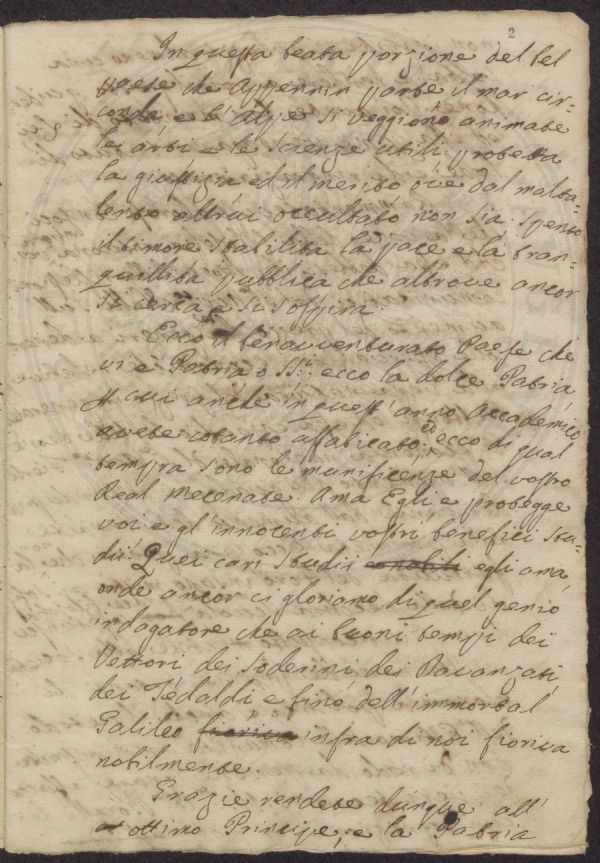 2
In questa beata porzione del bel
paese che Appennin parte il mar cir=
conda e l'Alpe si veggiono animate
le arti e le scienze utili protetta
la giustizia ed il merito ove dal malta=
lento altrui occultato non sia spento
il timore stabilita la pace e la tran=
quillità pubblica che altrove ancor
si cerca e si sospira.
Ecco il benavventurato Paese che
vi è Patria o SS.i ecco la dolce Patria
p cui anche in quest'anno Accademico
avete cotanto affaticato. ed ecco di qual
tempra sono le munificenze del vostro
Real Mecenate. Ama Egli e protegge
voi e gl'innocenti vostri benefici stu=
dii. Quei cari studii e nobili egli ama,
onde ancor ci gloriamo di quel genio
indagatore che ai buoni tempi dei
Vettori dei Soderini dei Davanzati
dei Tedaldi e fino dell'immortal
Galileo fioriva infra di noi fioriva
nobilmente.
Grazie rendete dunque all'
ottimo Principe, e la Patria